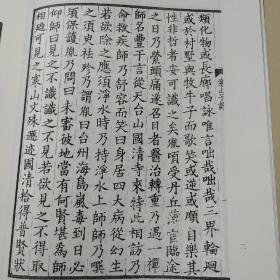 類化物或長廊唱詠唯言咄哉咄哉三界輪迴
或於村墅與牧牛子而歌笑或逆或順自樂其
性非哲者安可識之矣胤頃受丹丘薄宦臨途
之日乃縈頭痛遂召日者醫治轉重乃遇一禪
師名豐干言從天台山國清寺來特此相訪乃
命救疾師乃舒容而笑曰身居四大病從幻生
若欲除之應須淨水時乃持淨水上師師乃噀
之須臾祛殄乃謂胤曰台州海島嵐毒到日必
須保護胤乃問曰未審彼地當有何賢堪為師
仰師曰見之不識識之不見若欲見之不得取
相迺可見之寒山文殊遯迹國清拾得普賢狀
二